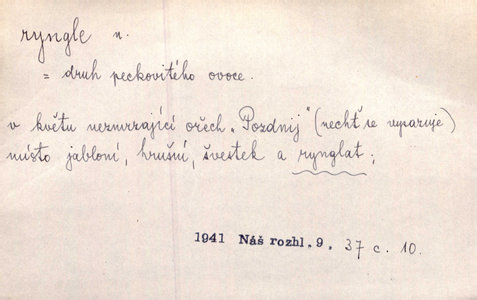 ryngle n.
= druh peckovitého ovoce.
v květu nezmrzající ořech „Pozdnij" (nechť se vysazuje)
místo jabloní, hrušní, švestek a rynglat;
1941 Náš rozhl. 9. 37 c. 10.